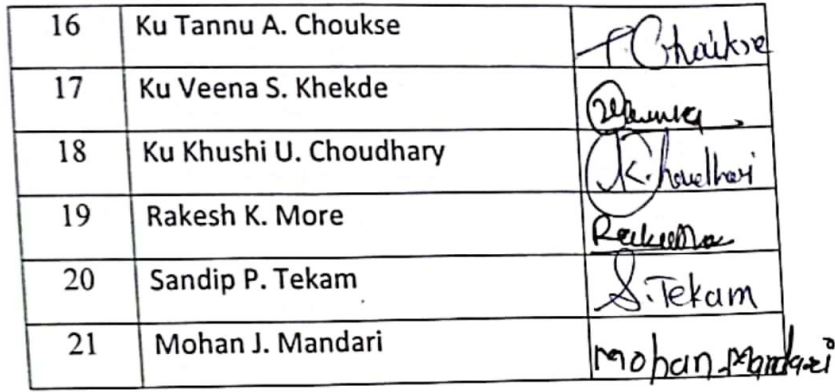 16 Ku Tannu A. Choukse T. Choukse
17 Ku Veena S. Khekde
18 Ku Khushi U. Choudhary K. Choudhari
19 Rakesh K. More
20 Sandip P. Tekam S. Tekam
21 Mohan J. Mandari Mohan Mandari